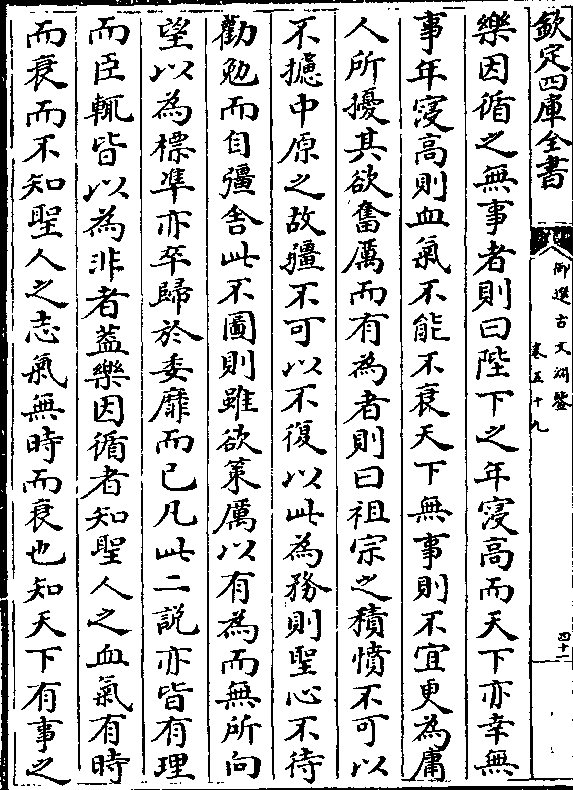 欽定四庫全書
御選古文淵鑒
卷五十九
四十二
樂因循之無事者則曰陛下之年寖高而天下亦幸無
事年寖高則血氣不能不衰天下無事則不宜更為庸
人所擾其欲奮厲而有為者則曰祖宗之積憤不可以
不攄中原之故疆不可以不復以此為務則聖心不待
勸勉而自彊舍此不圖則雖欲策厲以有為而無所向
望以為標準亦卒歸於委靡而已凡此二說亦皆有理
而臣輒皆以為非者蓋樂因循者知聖人之血氣有時
而衰而不知聖人之志氣無時而衰也知天下有事之